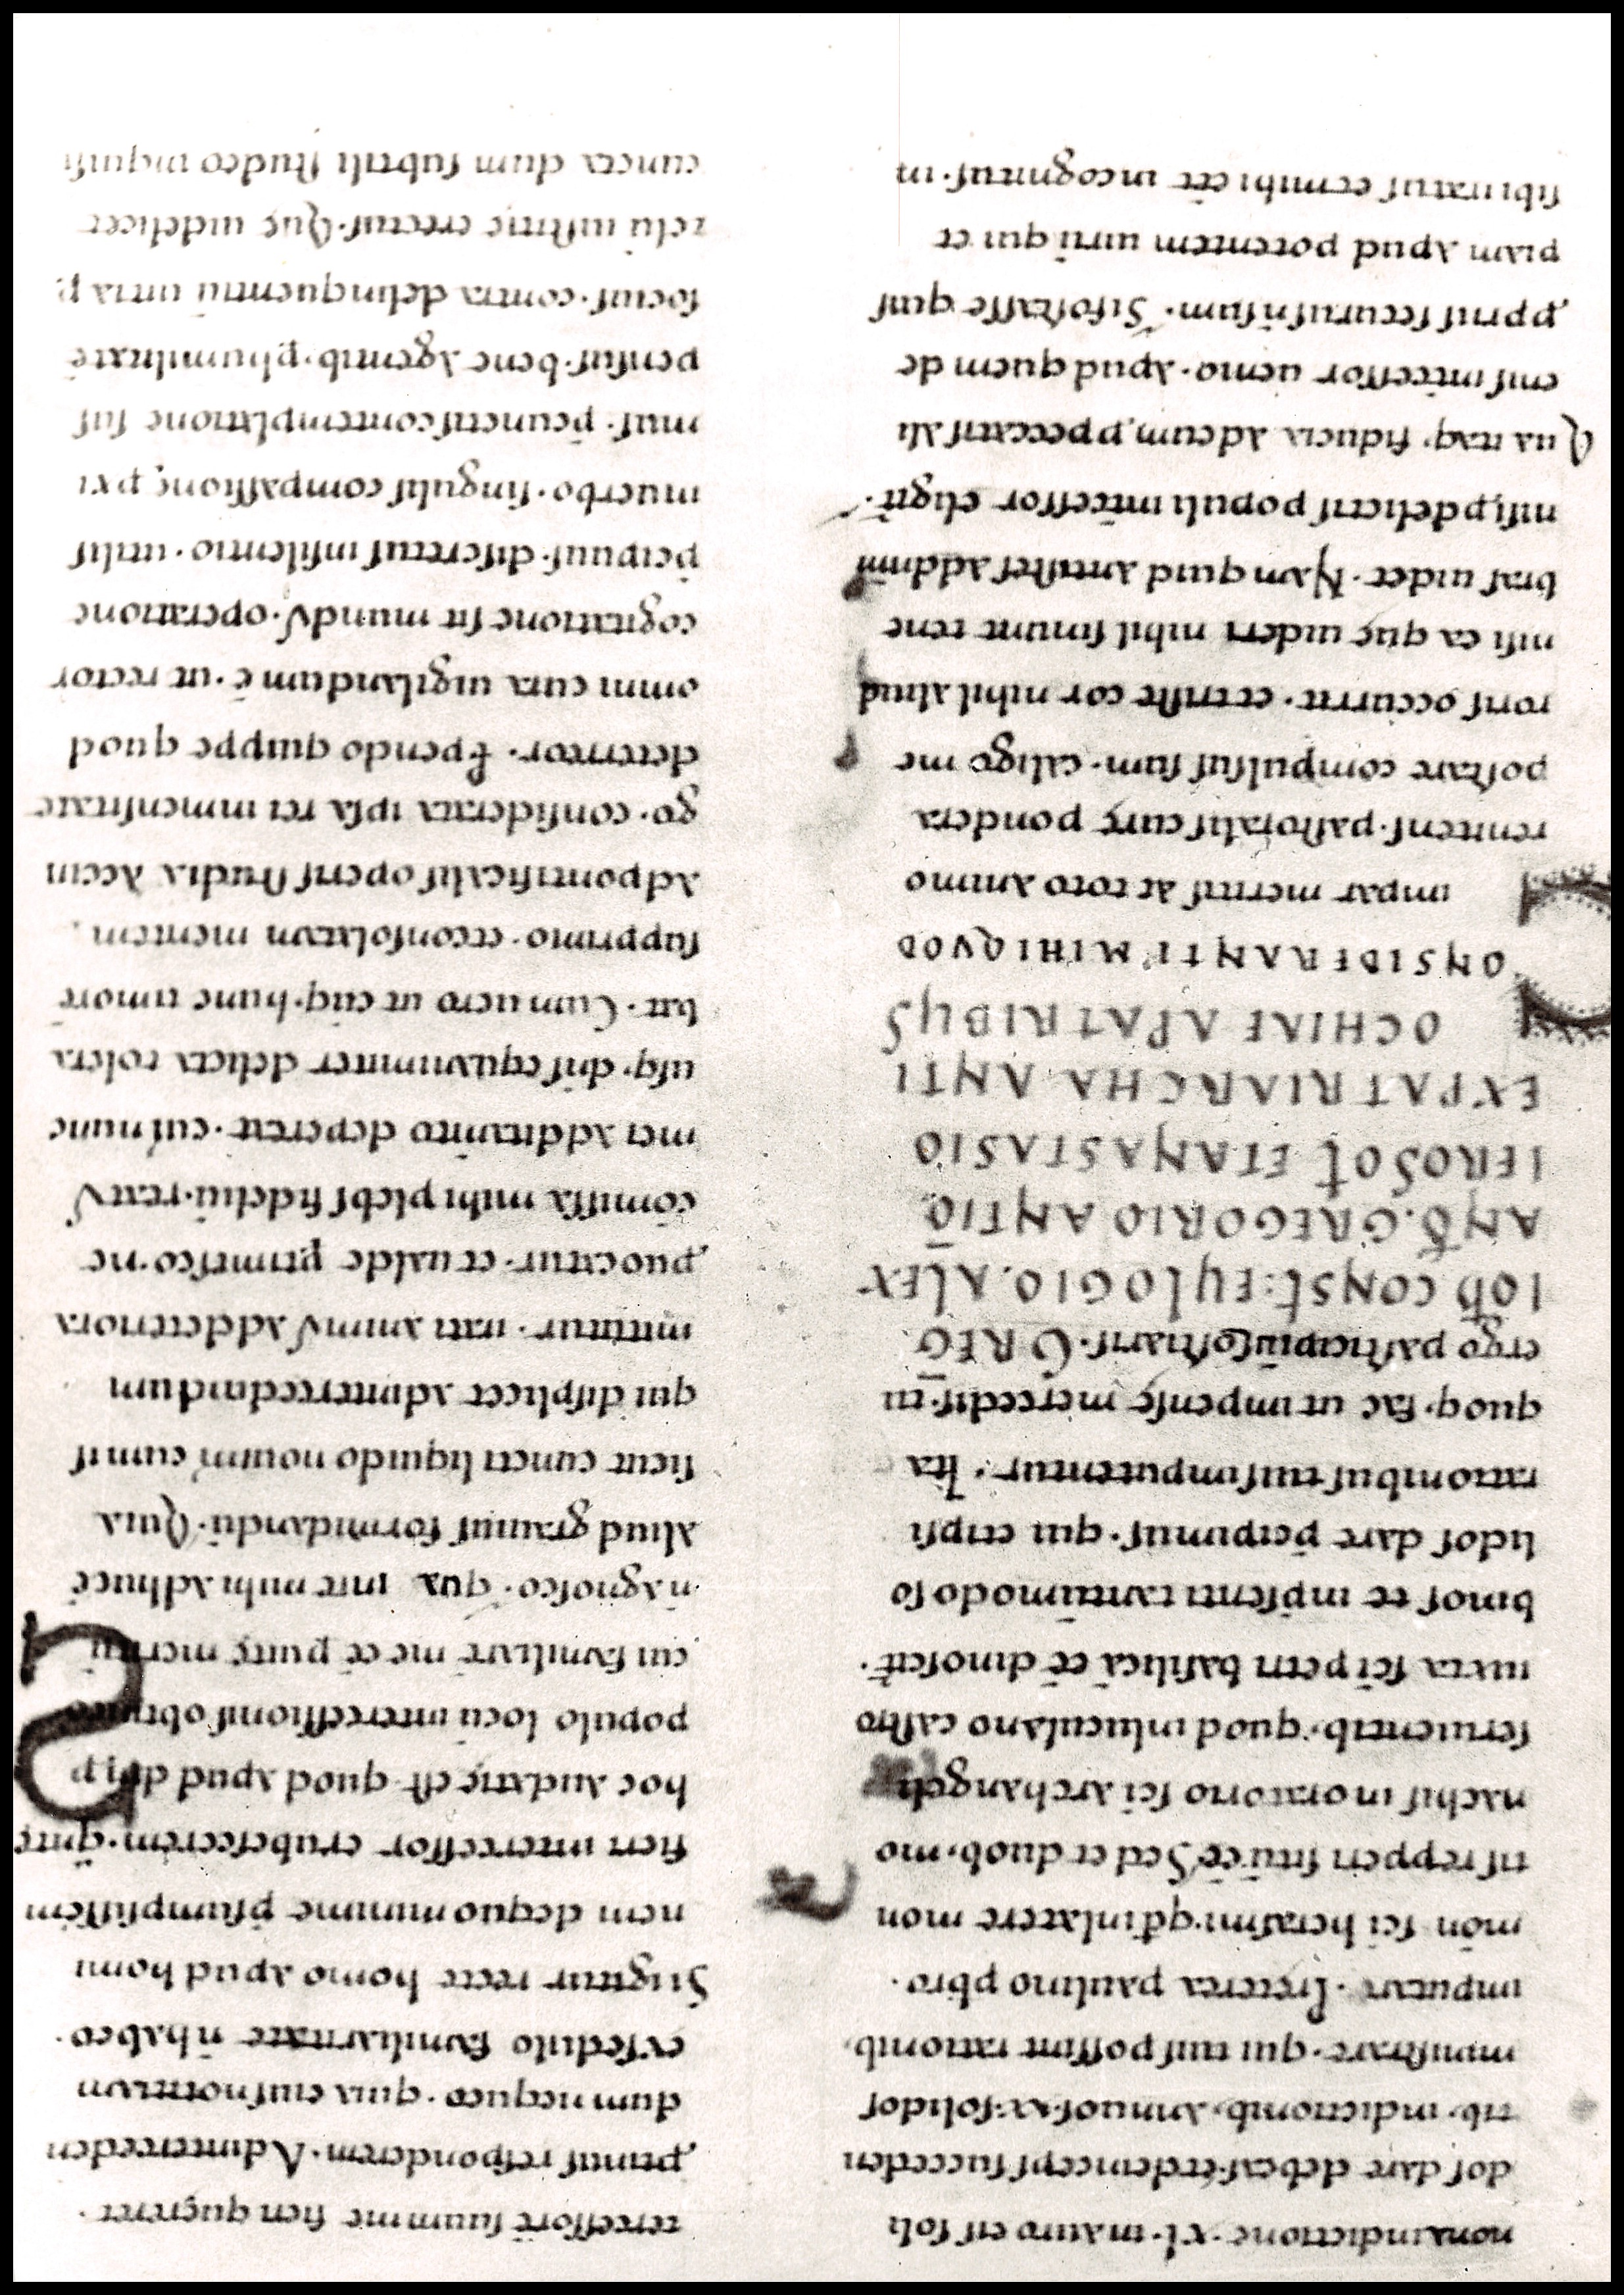 nona indictione .xl. in auro eis soli
dos dare debeas. et deinceps succeden
tib; indictionib; annuos .xx. solidos
ministrare. qui tuis possint rationib;
imputari. Preterea paulino pb̄ro.
mōn sc̄i herasmi. qd̄ in latere mon
tis repperi sitū eē Sed et duob; mo
nachis in oratorio sc̄i archangeli
seruientib; quod in luculano castro
iuxta sc̄i petri basilicā eē dinoscit̄.
binos et inpsenti tantūmodo so
lidos dare p̄cipimus. qui et ipsi
rationibus tuis imputentur. Ita
quoq; fac ut impensę mercedis. tu
ergo GREḠ
IOH̄ CONST: EULOGIO. ALEX
AND̄. GREGORIO ANTIO
IEROSOL̄ ET ANASTASIO
EX PATRIARCHA ANTI
OCHIAE A PATRIBUS
CONSIDERANTI MIHI QVOD
impar meritis ac toto animo
renitens. pastoralis curę pondera
portare compulsus sum. caligo me
roris occurrit. et triste cor nihil aliud
nisi ea quę uideri nihil sinunt tene
bras uidet. Nam quid antistes ad dn̄m
nisi p delictis populi int̄cessor eligit̄.
Qua itaq; fiducia ad eum p peccatis ali
enis int̄cessor uenio. apud quem de
ppriis securus n̄ sum. Si fortasse quis
piam apud potentem uirū qui et
sibi iratus et mihi eēt incognitus. in
tercessorē suum me fieri quęreret.
ptinus responderem. Ad interceden
dum nequeo. quia eius notitiam
ex sedulo familiaritate n̄ habeo.
Si igitur recte homo apud homi
nem de quo minime p̄sumpsissem
fieri intercessor erubescerem. quantę
hoc audatię est quod apud dm̄ p
populo locū intercessionis obtineo
cui familiarē me eē p uitę meritū
n̄ agnosco. qua in re mihi adhuc ē
aliud grauius formidandū. Quia
sicut cuncti liquido nouim; cum is
qui displicet ad intercedendum
mittitur. irati animus ad deteriora
puocatur. et ualde ptimesco. ne
cōmissa mihi plebs fideliū. reatus
mei additam̄to depereat. cuius nunc
usq; dn̄s equanimiter delicta tolera
bat. Cum uero ut cūq; hunc timorē
supprimo. et consolatam mentem
ad pontificalis operis studia accin
go. considerata ipsa rei immensitate
deterreor. Ppendo quippe quod
omni cura uigilandum ē. ut rector
cogitatione sit mundus. operatione
p̄cipuus. discretus in silentio. utilis
in uerbo. singulis compassionę pxi
mus. p̄ cunctis contemplatione sus
pensus. bene agentib; p humilitatē
socius. contra delinquentiū uitia p
zelū iustitię erectus. Quę uidelicet
cuncta dum subtili studeo inquisi